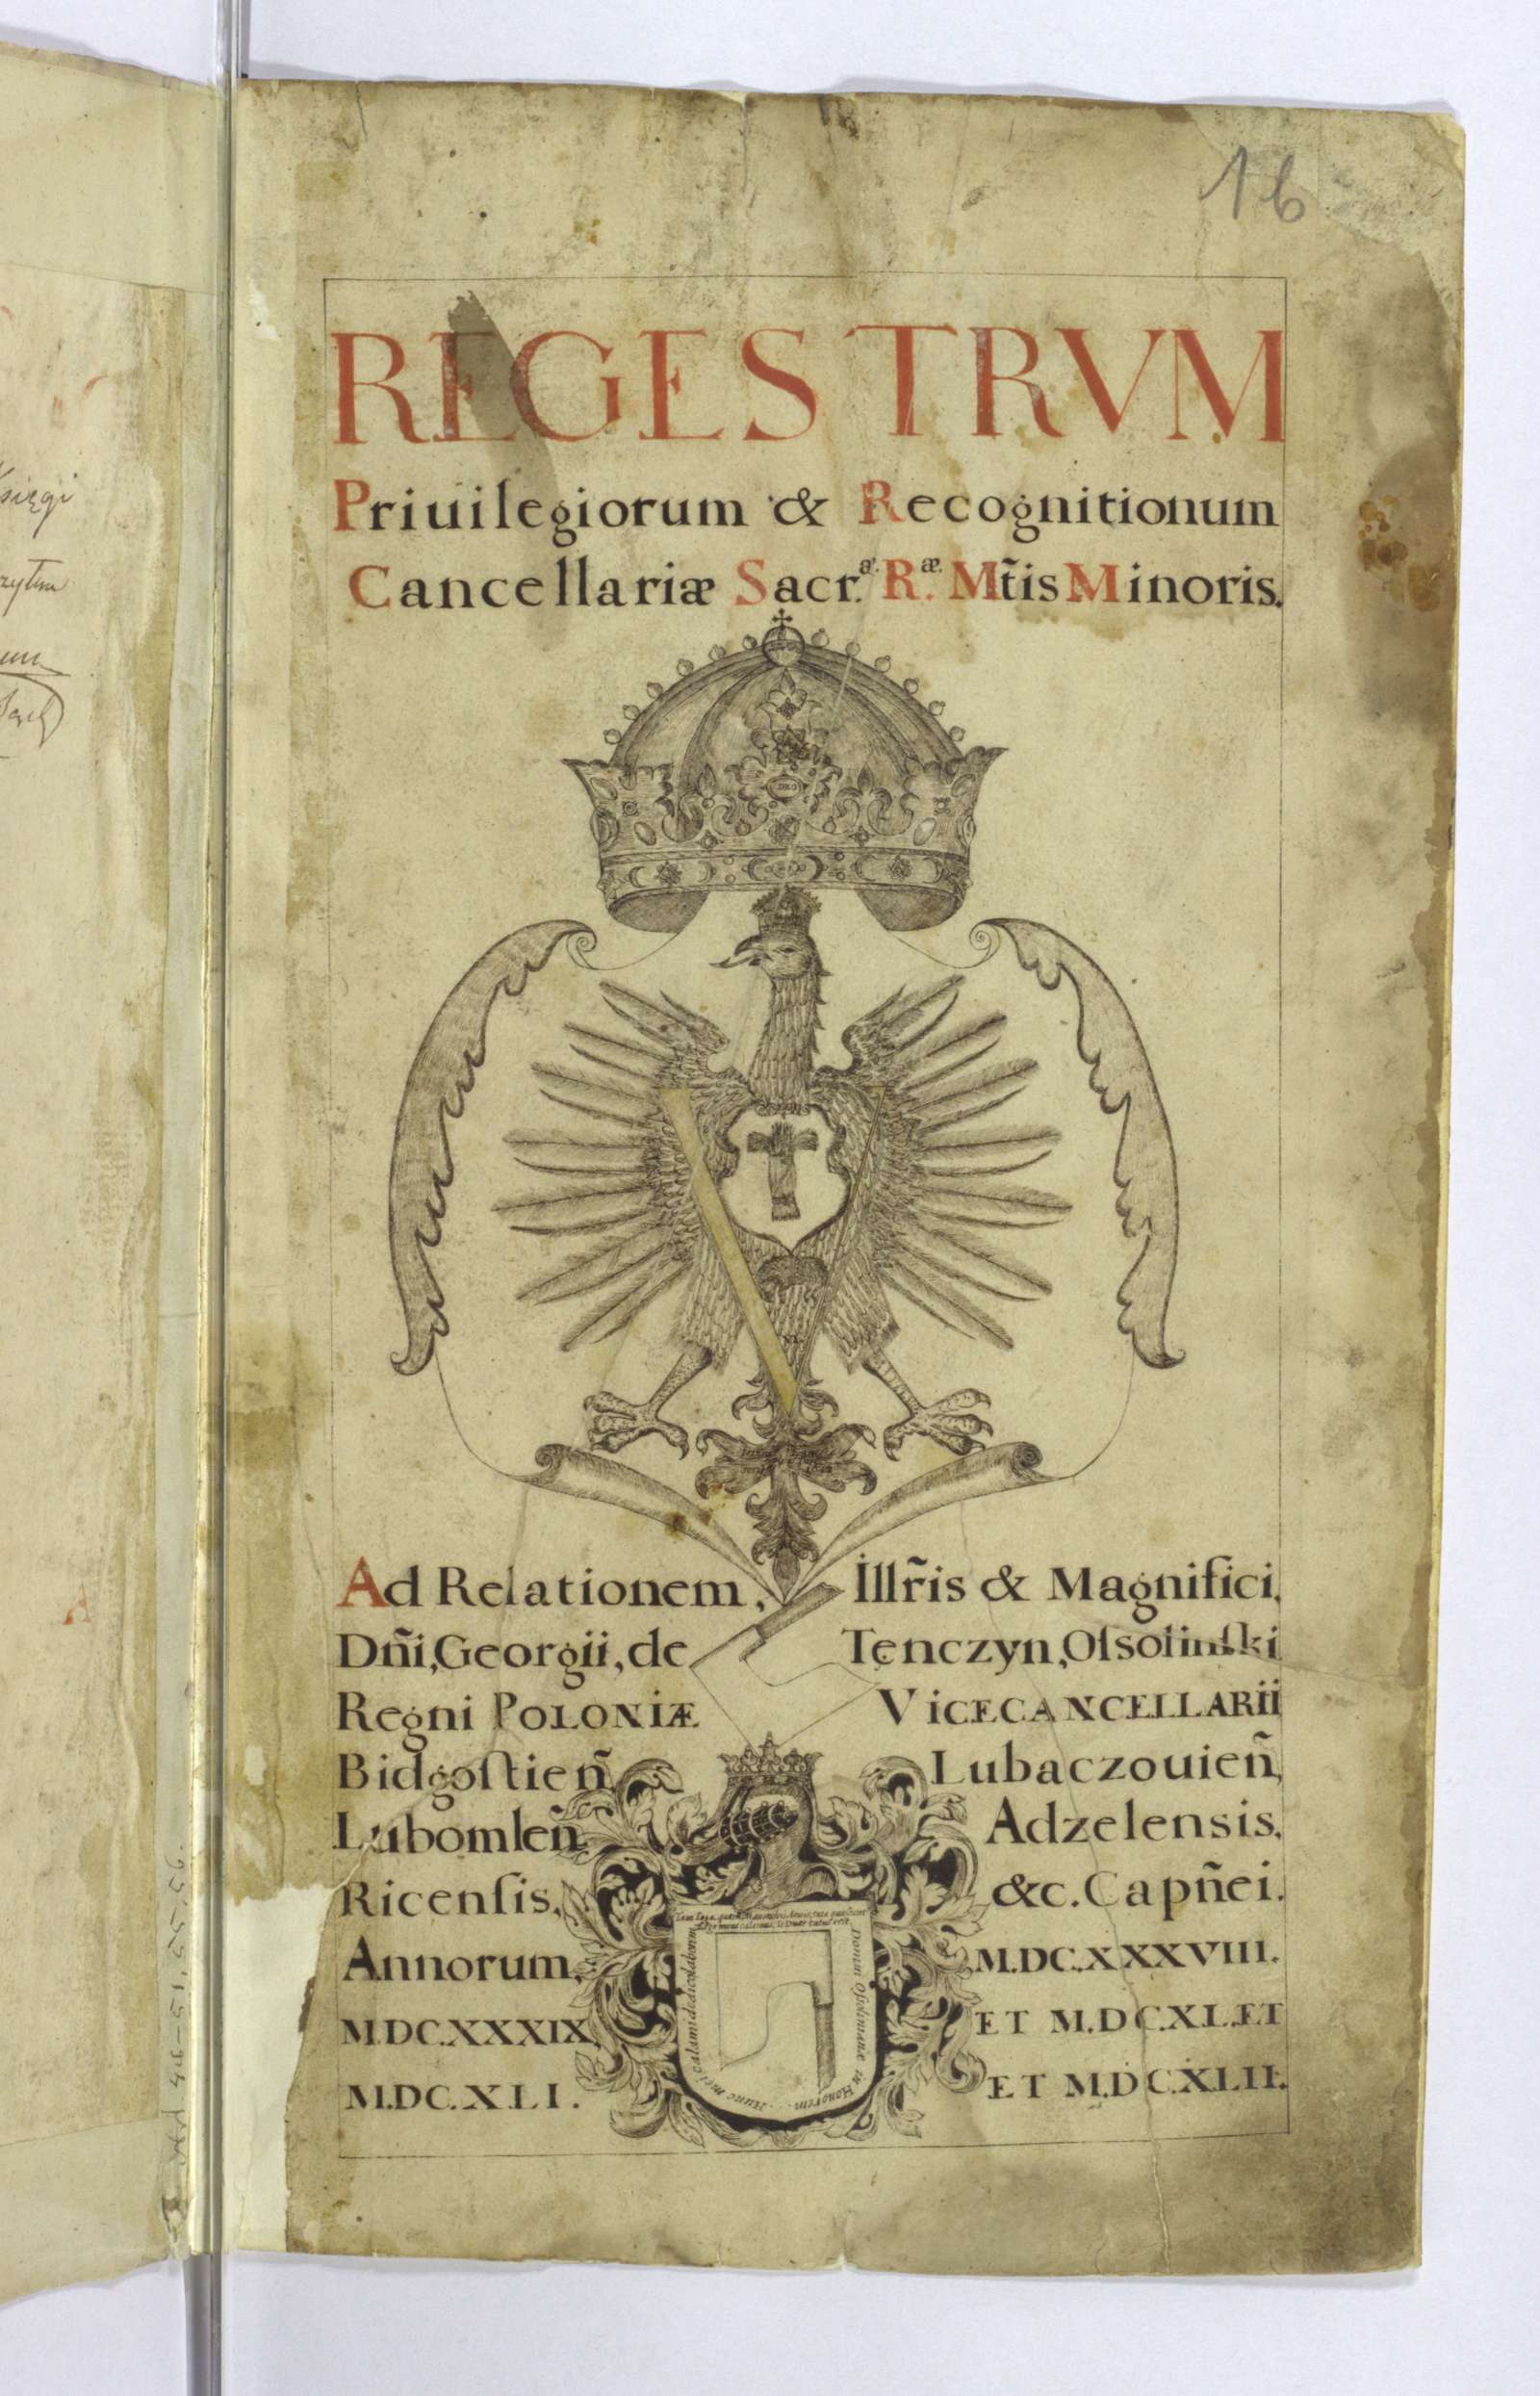 16
REGESTRVM
Priuilegiorum & Recognitionum
Cancellariæ Sacr.æ R.æ Mt̃is Minoris.
Ad Relationem, Illr̃is & Magnifici,
Dñi, Georgii, de Tenczyn, Oſsolinſki
Regni POLONIÆ VICECANCELLARII
Bidgoſtien̄, Lubaczouien̄,
Lubomlen̄ Adzelensis,
Ricenſis, &c. Capñei.
Annorum, M.DC.XXXVIII.
M.DC.XXXIX. ET M.DC.XL.ET
M.DC.XLI. ET M.DC.XLII.
Domus Oſsolinianæ in Honorem
Hunc mei calami dedico laborem